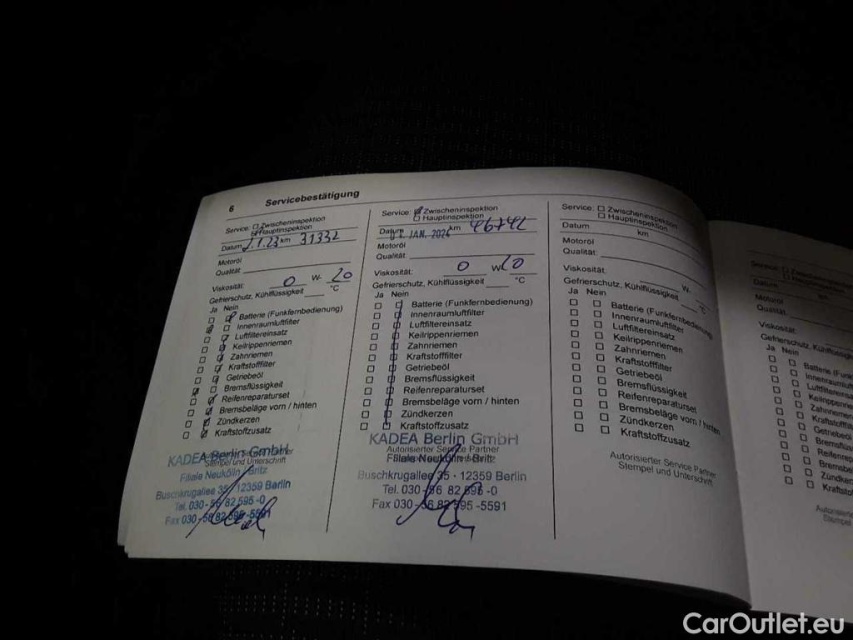 6 Servicebestätigung
Service: Zwischeninspektion
Hauptinspektion
Datum 1.23 km 31332
Motoröl
Qualität
Viskosität: 0 W- 20
Gefrierschutz, Kühlflüssigkeit °C
Ja Nein
Batterie (Funkfernbedienung)
Innenraumluftfilter
Luftfiltereinsatz
Keilrippenriemen
Zahnriemen
Kraftstofffilter
Getriebeöl
Bremsflüssigkeit
Reifenreparaturset
Bremsbeläge vorn / hinten
Zündkerzen
Kraftstoffzusatz
KADEA Berlin GmbH
Autorisierter Service Partner
Stempel und Unterschrift
Filiale Neukölln / Britz
Buschkrugallee 35 · 12359 Berlin
Tel. 030 - 56 82 595 -0
Fax 030 - 56 82 595 -5591
Service: Zwischeninspektion
Hauptinspektion
Datum JAN. 2024 km 46742
Motoröl
Qualität:
Viskosität: 0 W 20
Gefrierschutz, Kühlflüssigkeit °C
Ja Nein
Batterie (Funkfernbedienung)
Innenraumluftfilter
Luftfiltereinsatz
Keilrippenriemen
Zahnriemen
Kraftstofffilter
Getriebeöl
Bremsflüssigkeit
Reifenreparaturset
Bremsbeläge vorn / hinten
Zündkerzen
Kraftstoffzusatz
KADEA Berlin GmbH
Autorisierter Service Partner
Filiale Neukölln / Britz
Buschkrugallee 35 · 12359 Berlin
Tel. 030 - 56 82 595 -0
Fax 030 - 56 82 595 -5591
Service: Zwischeninspektion
Hauptinspektion
Datum km
Motoröl
Qualität:
Viskosität: W-
Gefrierschutz, Kühlflüssigkeit °C
Ja Nein
Batterie (Funkfernbedienung)
Innenraumluftfilter
Luftfiltereinsatz
Keilrippenriemen
Zahnriemen
Kraftstofffilter
Getriebeöl
Bremsflüssigkeit
Reifenreparaturset
Bremsbeläge vorn / hinten
Zündkerzen
Kraftstoffzusatz
Autorisierter Service Partner
Stempel und Unterschrift
Datum
Motoröl
Qualität:
Viskosität:
Gefrierschutz, Kühlflüssigk
Ja Nein
Batterie (Fun
Innenrauml
Luftfiltereins
Keilrippenri
Zahnriemen
Kraftstofff
Getriebeöl
Bremsflüs
Reifenrep
Bremsbel
Zündker
Kraftsto
Autoris
Stempel
CarOutlet.eu